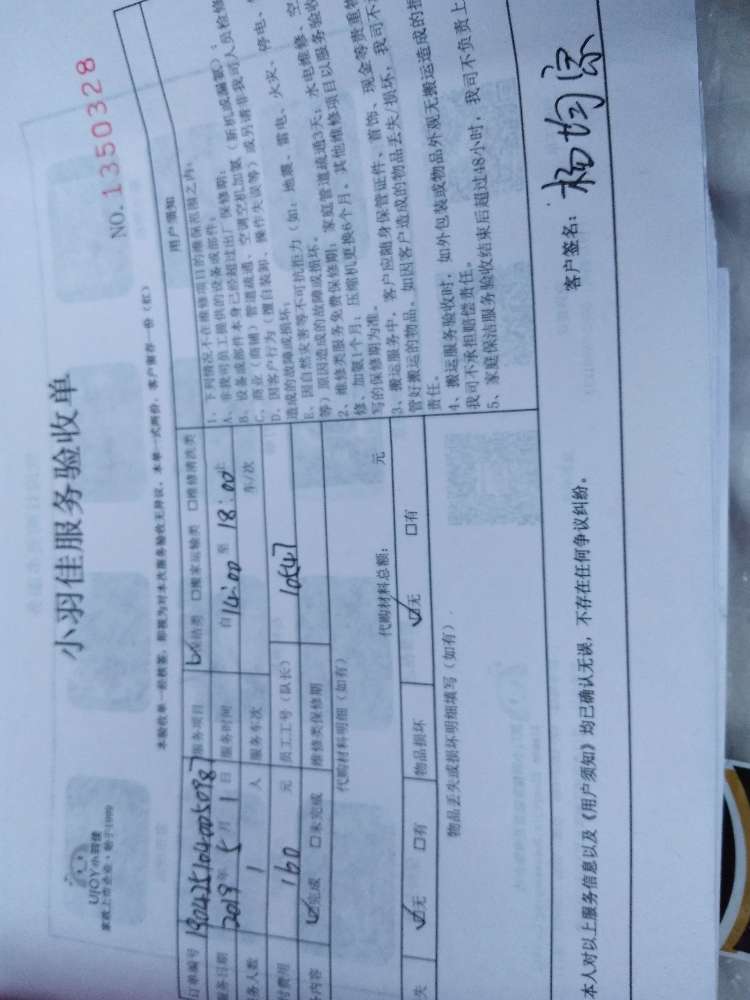 UJOY小羽佳
家政上市企业·始于1999
小羽佳服务验收单
NO.1350328
本验收单一经核签，即视为对本次服务验收无异议，本单一式两份，客户留存一份（红）
订单编号 1904251040050987 服务项目 ☑保洁类 □搬家运输类 □维修清洗类
服务日期 2019年5月1日 服务时间 自14:00至18:00止
务人数 1 人 服务车次 车/次
付费用 160 元 员工工号（队长） 10547
内容: ☑完成 □未完成 维修类保修期
代购材料明细（如有）
代购材料总额: 元
失 ☑无 □有 物品损坏 ☑无 □有
物品丢失或损坏明细填写（如有）
用户须知
1、下列情况不在维修项目的维保范围之内:
A、非我司员工提供的设备或部件;
B、设备或部件本身已经超过出厂保修期;
C、商业（商铺）管道疏通、空调空机加氨（新机或漏氨）;
D、因客户行为（擅自装卸、操作失误等）或另请非我司人员检修
造成的故障或损坏;
E、因自然灾害等不可抗拒力（如: 地震、雷电、火灾、停电、
等）原因造成的故障或损坏。
2、维修类服务免费保修期: 家庭管道疏通3天; 水电维修、空
修、加氨1个月; 压缩机更换6个月。其他维修项目以服务验收
写的保修期为准。
3、搬运服务中，客户应随身保管证件、首饰、现金等贵重物
管好搬运的物品。如因客户造成的物品丢失/损坏，我司不
责任。
4、搬运服务验收时，如外包装或物品外观无搬运造成的损
我司不承担赔偿责任。
5、家庭保洁服务验收结束后超过48小时，我司不负责上
本人对以上服务信息以及《用户须知》均已确认无误，不存在任何争议纠纷。
客户签名: 杨均深